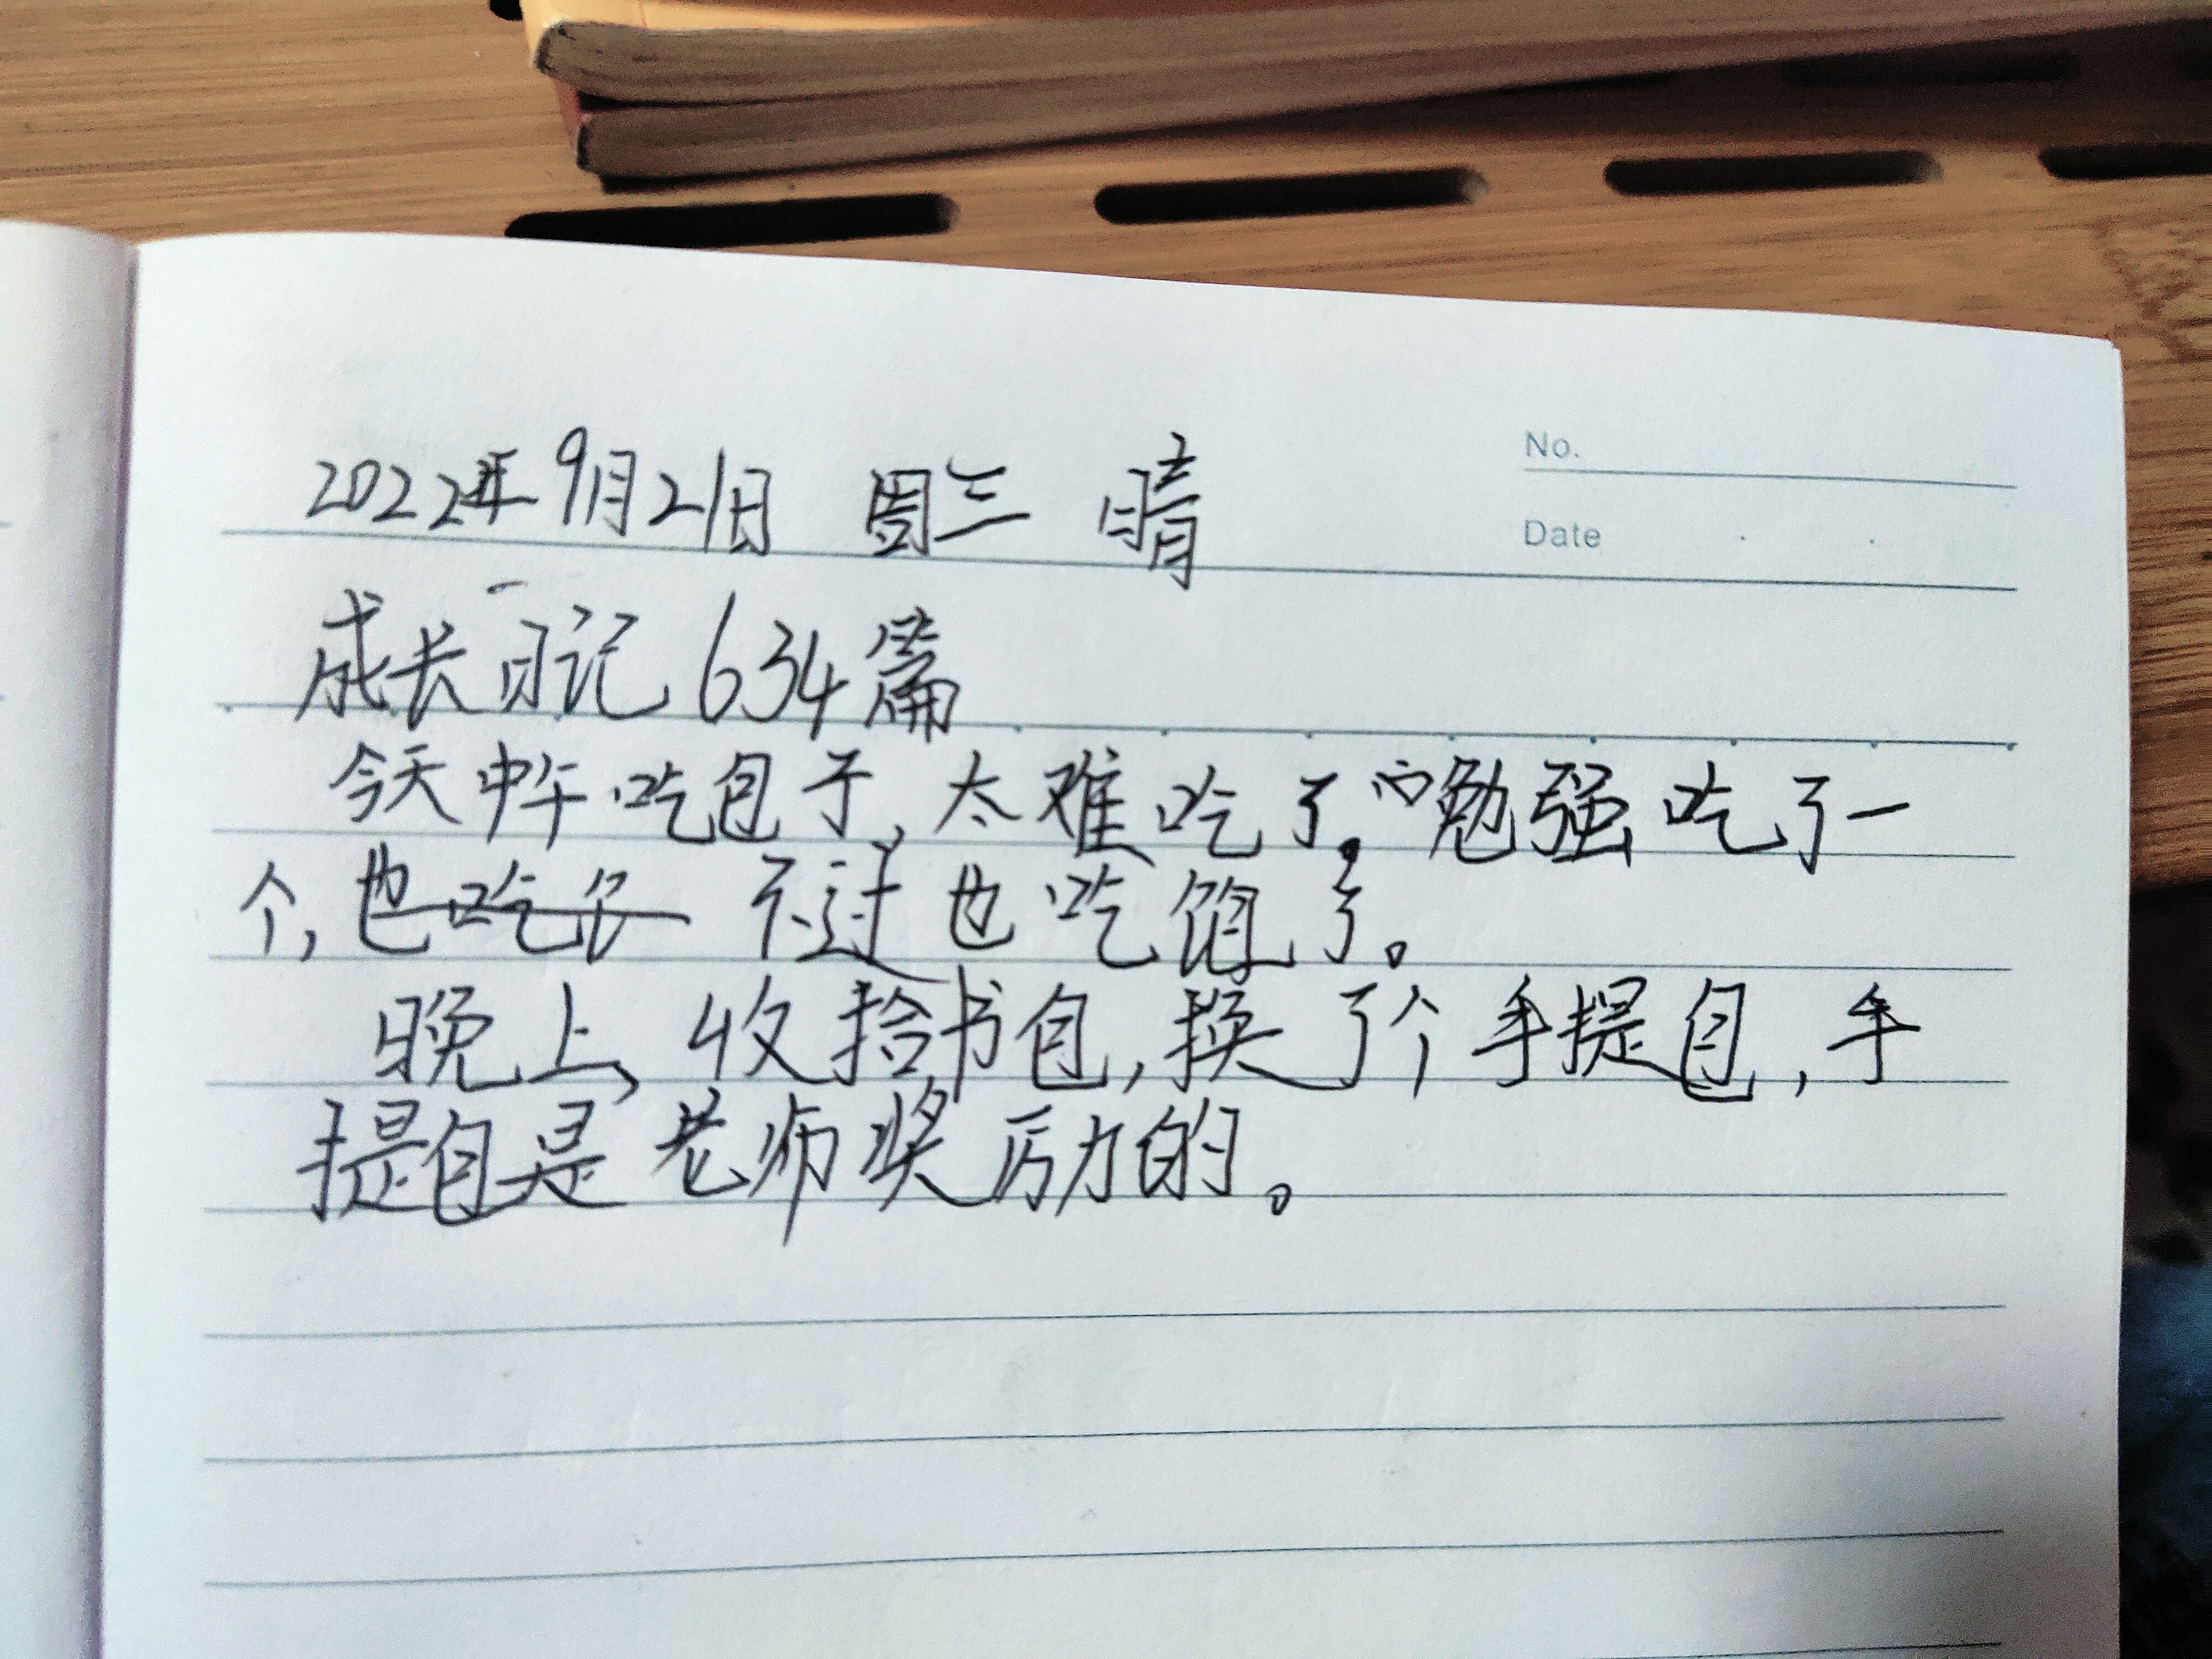 No.
2022年9月21日 周三 晴
Date
成长日记634篇
今天中午吃包子,太难吃了。勉强吃了一
个,也吃亿 不过也吃饱了。
晚上,收拾书包,换了个手提包,手
提包是老师奖励的。